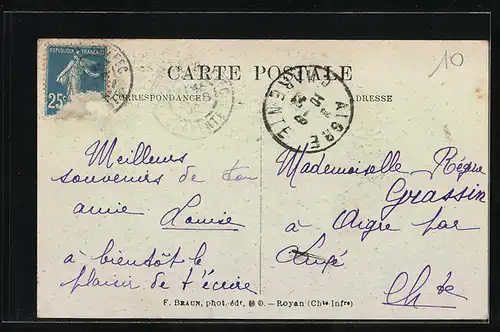 10
REPUBLIQUE FRANCAISE
25c
CARTE POSTALE
CORRESPONDANCE
ADRESSE
AIGRE
CHARENTE
Meilleurs
souvenirs de ton
amie Louise
à bientôt le
plaisir de t'écrire
Mademoiselle Régina
Grassin
à Aigre par
Luxé
Chte
F. BRAUN, phot.-édr, Royan (Chte-Infre)